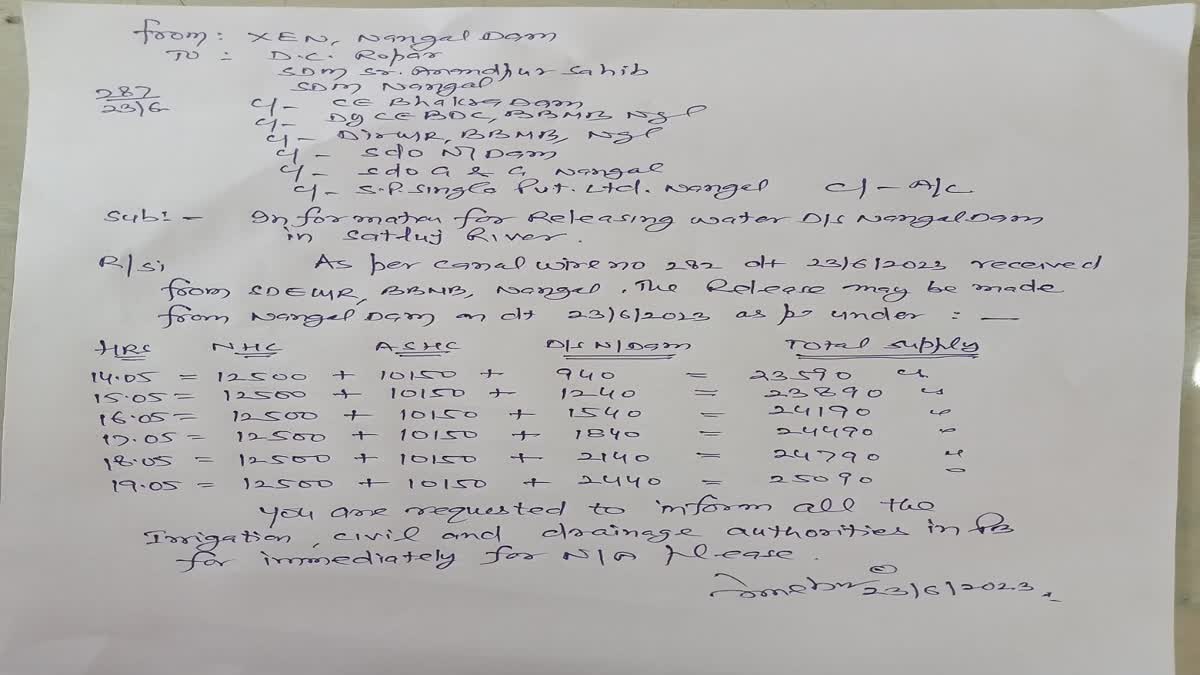 from: XEN, Nangal Dam
To: D.C. Ropar
SDM Sr. Anandpur Sahib
SDM Nangal
287
23/6
C/- CE Bhakra Dam
C/- Dy CE BDC, BBMB Ngl
C/- Dir W/R, BBMB, Ngl
C/- Sdo N/Dam
C/- Sdo G & G Nangal
C/- S.P. Singla Pvt. Ltd. Nangal C/- A/C
Sub:- Information for Releasing water D/S Nangal Dam
in Satluj River.
R/Si, As per canal wire no 282 dt 23/6/2023 received
from SDEWR, BBMB, Nangal. The Release may be made
from Nangal Dam on dt 23/6/2023 as per under: —
HRS NHC ASHC D/S N/Dam Total supply
14.05 = 12500 + 10150 + 940 = 23590 Cs
15.05 = 12500 + 10150 + 1240 = 23890 "
16.05 = 12500 + 10150 + 1540 = 24190 "
17.05 = 12500 + 10150 + 1840 = 24490 "
18.05 = 12500 + 10150 + 2140 = 24790 "
19.05 = 12500 + 10150 + 2440 = 25090 "
You are requested to inform all the
Irrigation, civil and drainage authorities in PB
for immediately for N/A Please.
23/6/2023